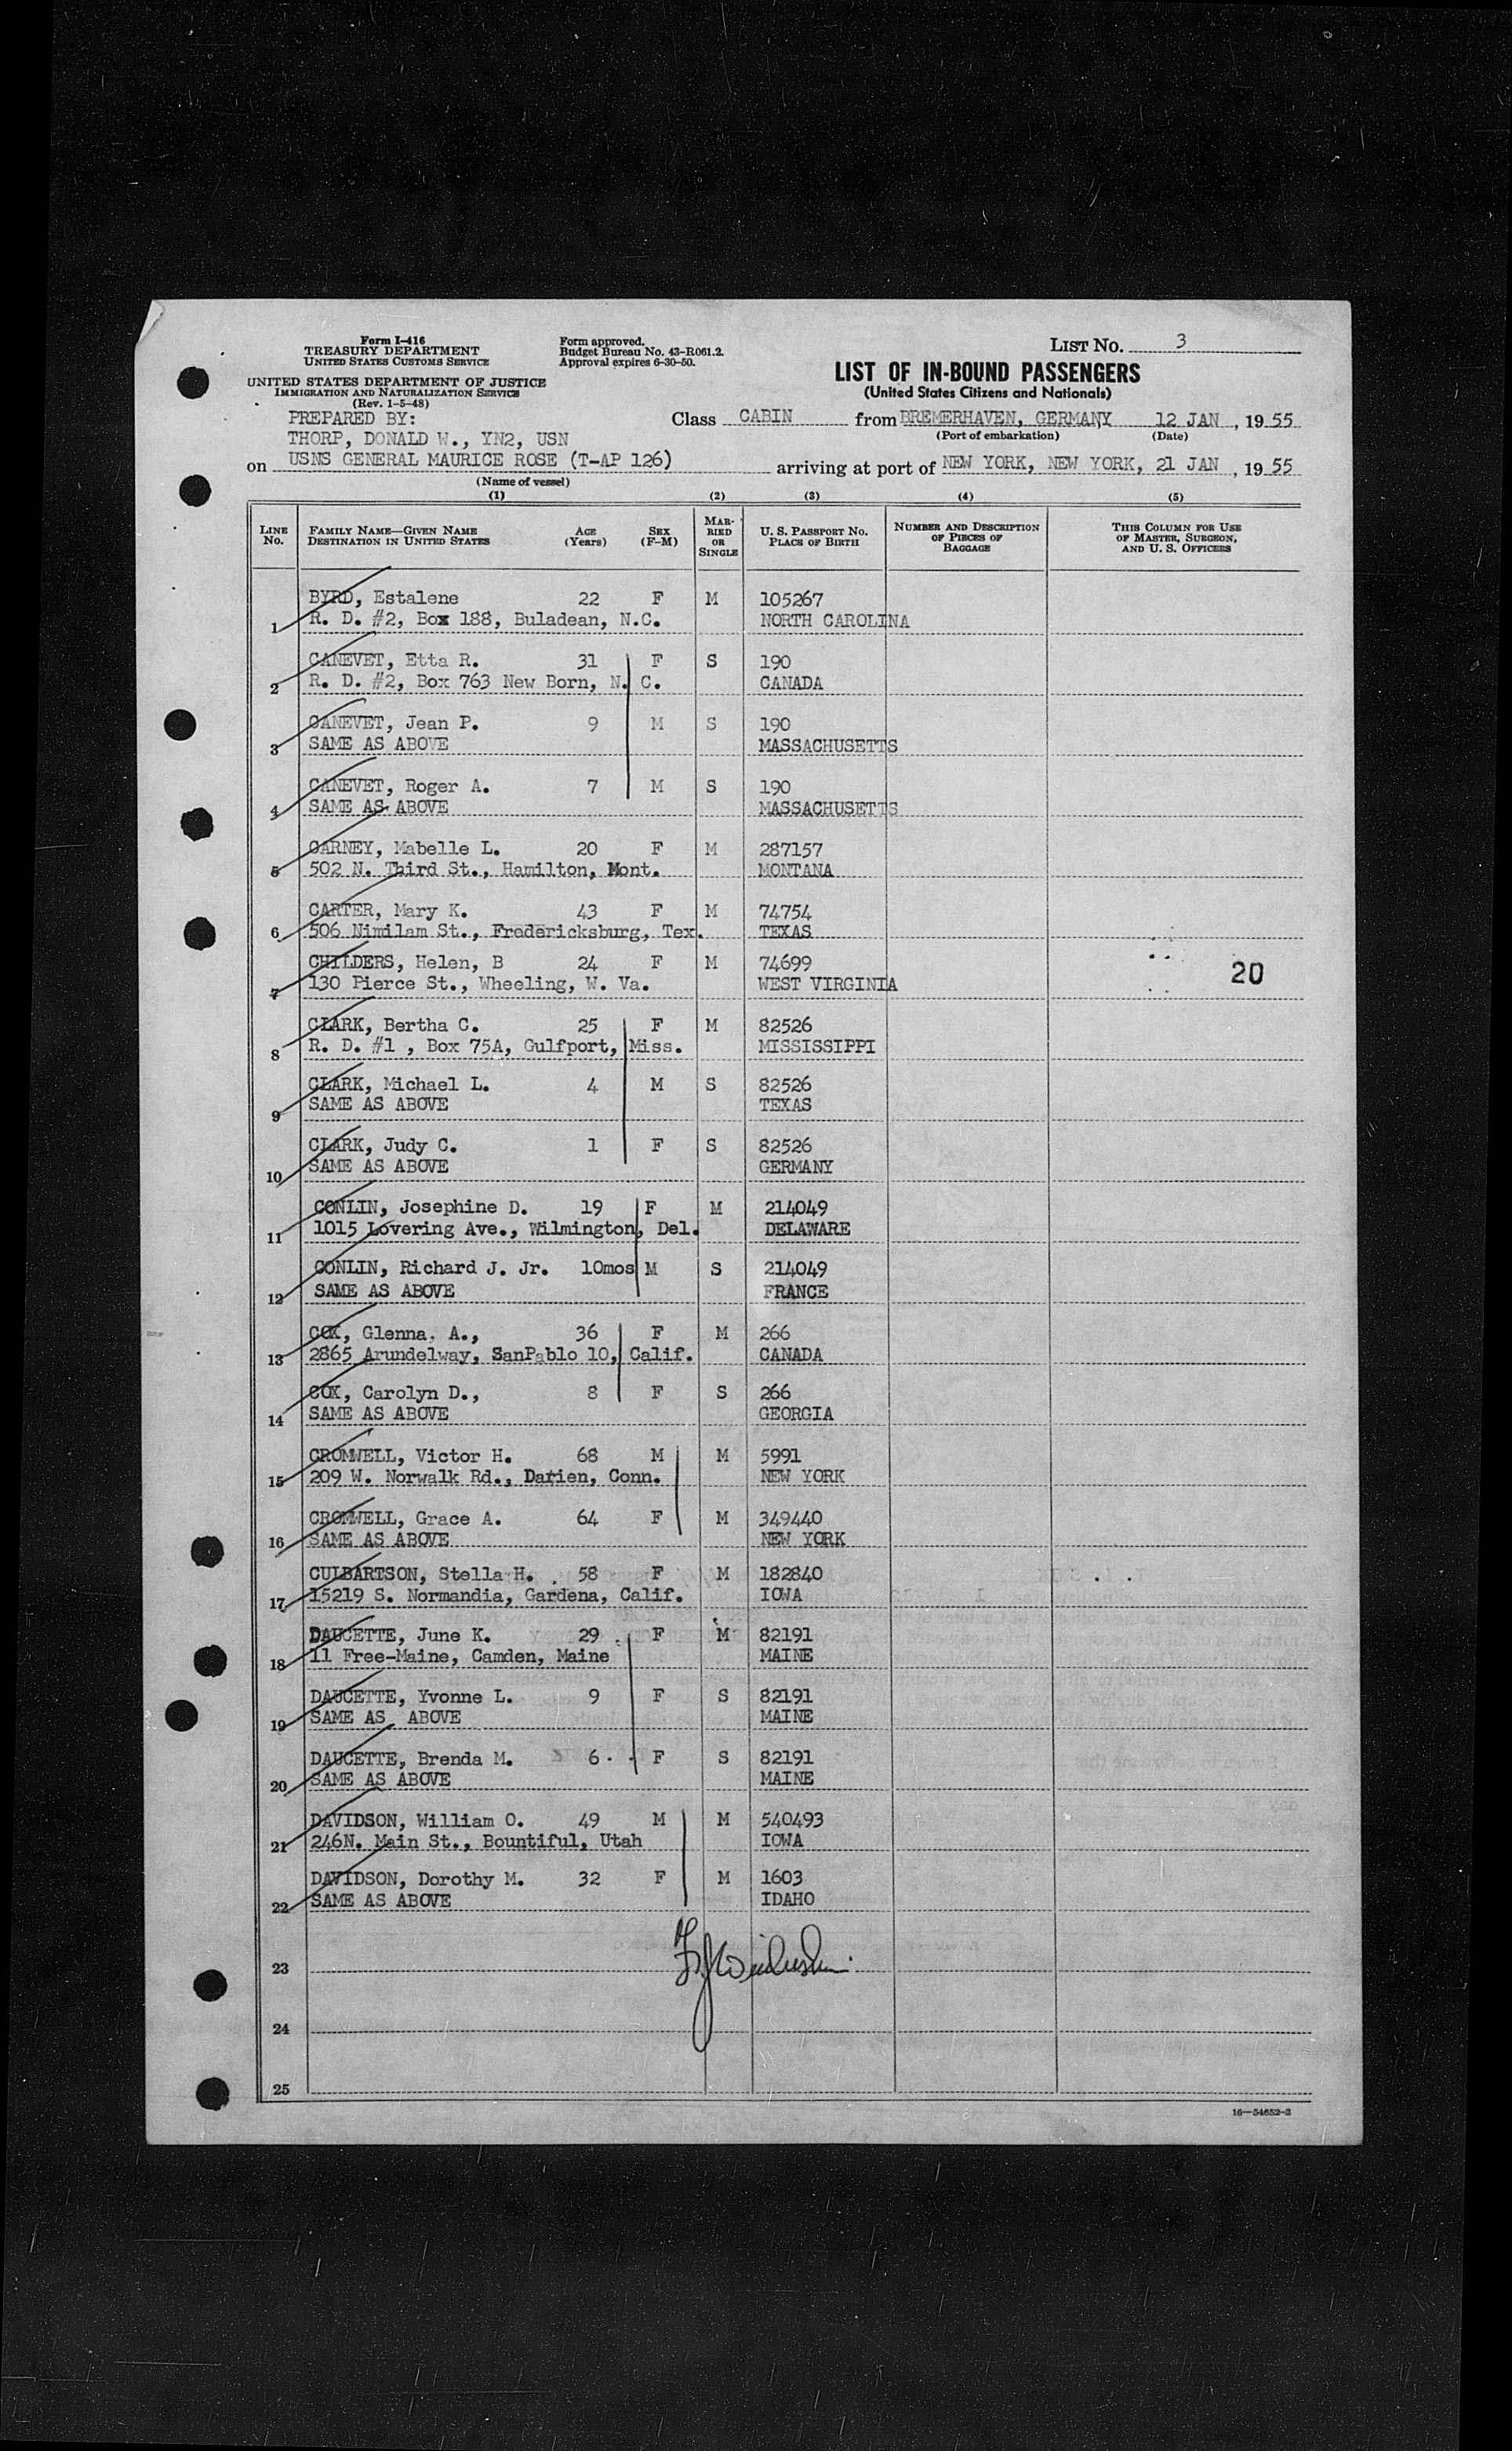 Form I-416
TREASURY DEPARTMENT
UNITED STATES CUSTOMS SERVICE
UNITED STATES DEPARTMENT OF JUSTICE
IMMIGRATION AND NATURALIZATION SERVICE
(Rev. 1-5-48)
Form approved.
Budget Bureau No. 43-R061.2.
Approval expires 6-30-50.
LIST NO. 3
LIST OF IN-BOUND PASSENGERS
(United States Citizens and Nationals)
PREPARED BY:
THORP, DONALD W., YN2, USN
Class CABIN from BREMERHAVEN, GERMANY 12 JAN, 1955
(Port of embarkation) (Date)
on USNS GENERAL MAURICE ROSE (T-AP 126) arriving at port of NEW YORK, NEW YORK, 21 JAN, 1955
(Name of vessel)
(1) (2) (3) (4) (5)
LINE NO. FAMILY NAME—GIVEN NAME DESTINATION IN UNITED STATES AGE (Years) SEX (F-M) MARRIED OR SINGLE U. S. PASSPORT NO. PLACE OF BIRTH NUMBER AND DESCRIPTION OF PIECES OF BAGGAGE THIS COLUMN FOR USE OF MASTER, SURGEON, AND U. S. OFFICERS
BYRD, Estalene 22 F M 105267
1 R. D. #2, Box 188, Buladean, N.C. NORTH CAROLINA
CANEVET, Etta R. 31 F S 190
2 R. D. #2, Box 763 New Born, N. C. CANADA
CANEVET, Jean P. 9 M S 190
3 SAME AS ABOVE MASSACHUSETTS
CANEVET, Roger A. 7 M S 190
4 SAME AS ABOVE MASSACHUSETTS
CARNEY, Mabelle L. 20 F M 287157
5 502 N. Third St., Hamilton, Mont. MONTANA
CARTER, Mary K. 43 F M 74754
6 506 Nimilam St., Fredericksburg, Tex. TEXAS
CHILDERS, Helen, B 24 F M 74699
7 130 Pierce St., Wheeling, W. Va. WEST VIRGINIA
20
CLARK, Bertha C. 25 F M 82526
8 R. D. #1 , Box 75A, Gulfport, Miss. MISSISSIPPI
CLARK, Michael L. 4 M S 82526
9 SAME AS ABOVE TEXAS
CLARK, Judy C. 1 F S 82526
10 SAME AS ABOVE GERMANY
CONLIN, Josephine D. 19 F M 214049
11 1015 Lovering Ave., Wilmington, Del. DELAWARE
CONLIN, Richard J. Jr. 10mos M S 214049
12 SAME AS ABOVE FRANCE
COX, Glenna. A., 36 F M 266
13 2865 Arundelway, SanPablo 10, Calif. CANADA
COX, Carolyn D., 8 F S 266
14 SAME AS ABOVE GEORGIA
CROMWELL, Victor H. 68 M M 5991
15 209 W. Norwalk Rd., Darien, Conn. NEW YORK
CROMWELL, Grace A. 64 F M 349440
16 SAME AS ABOVE NEW YORK
CULBARTSON, Stella H. 58 F M 182840
17 15219 S. Normandia, Gardena, Calif. IOWA
DAUCETTE, June K. 29 F M 82191
18 11 Free-Maine, Camden, Maine MAINE
DAUCETTE, Yvonne L. 9 F S 82191
19 SAME AS ABOVE MAINE
DAUCETTE, Brenda M. 6 F S 82191
20 SAME AS ABOVE MAINE
DAVIDSON, William O. 49 M M 540493
21 246N. Main St., Bountiful, Utah IOWA
DAVIDSON, Dorothy M. 32 F M 1603
22 SAME AS ABOVE IDAHO
23
24
25
16—54652-3